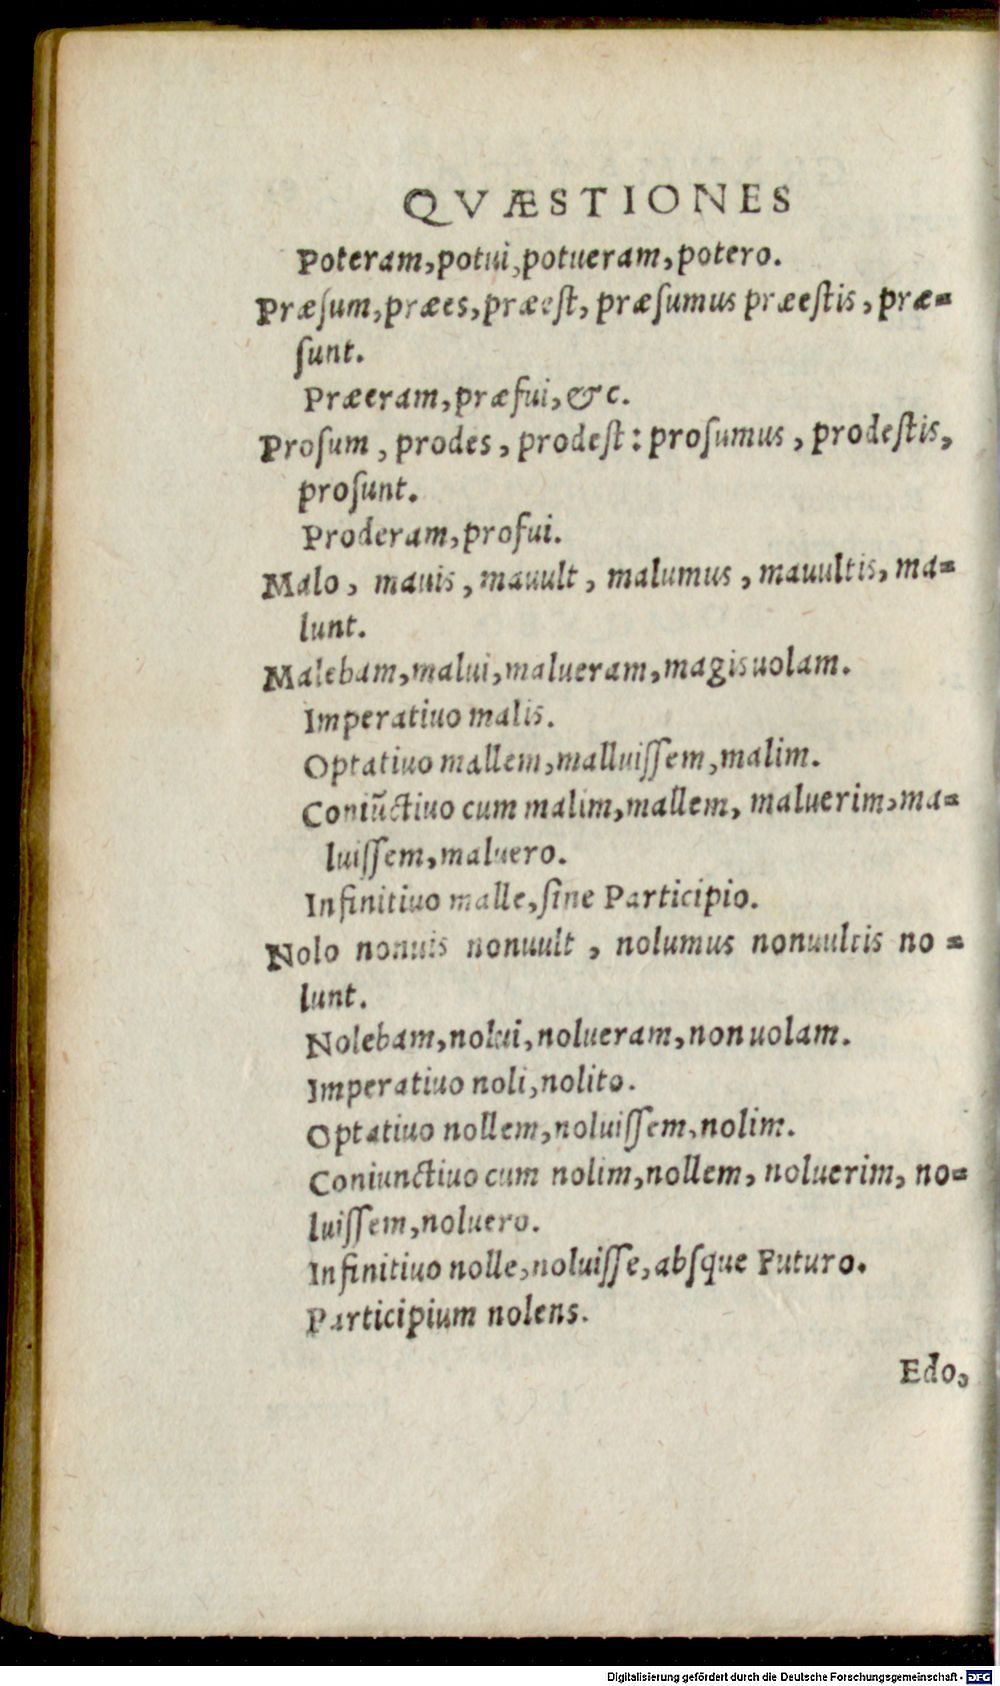 QVÆSTIONES
Poteram, potui, potueram, potero.
Præſum, præes, præeſt, præſumus præeſtis, præ=
ſunt.
Præeram, præfui, &c.
Proſum, prodes, prodeſt: proſumus, prodeſtis,
proſunt.
Proderam, profui.
Malo, mauis, mauult, malumus, mauultis, ma=
lunt.
Malebam, malui, malueram, magis uolam.
Imperatiuo malis.
Optatiuo mallem, malluiſſem, malim.
Coniūctiuo cum malim, mallem, maluerim, ma=
luiſſem, maluero.
Infinitiuo malle, ſine Participio.
Nolo nonuis nonuult, nolumus nonuultis no=
lunt.
Nolebam, nolui, nolueram, non uolam.
Imperatiuo noli, nolito.
Optatiuo nollem, noluiſſem, nolim.
Coniunctiuo cum nolim, nollem, noluerim, no=
luiſſem, noluero.
Infinitiuo nolle, noluiſſe, abſque Futuro.
Participium nolens.
Edo,
Digitalisierung gefördert durch die Deutsche Forschungsgemeinschaft - DFG